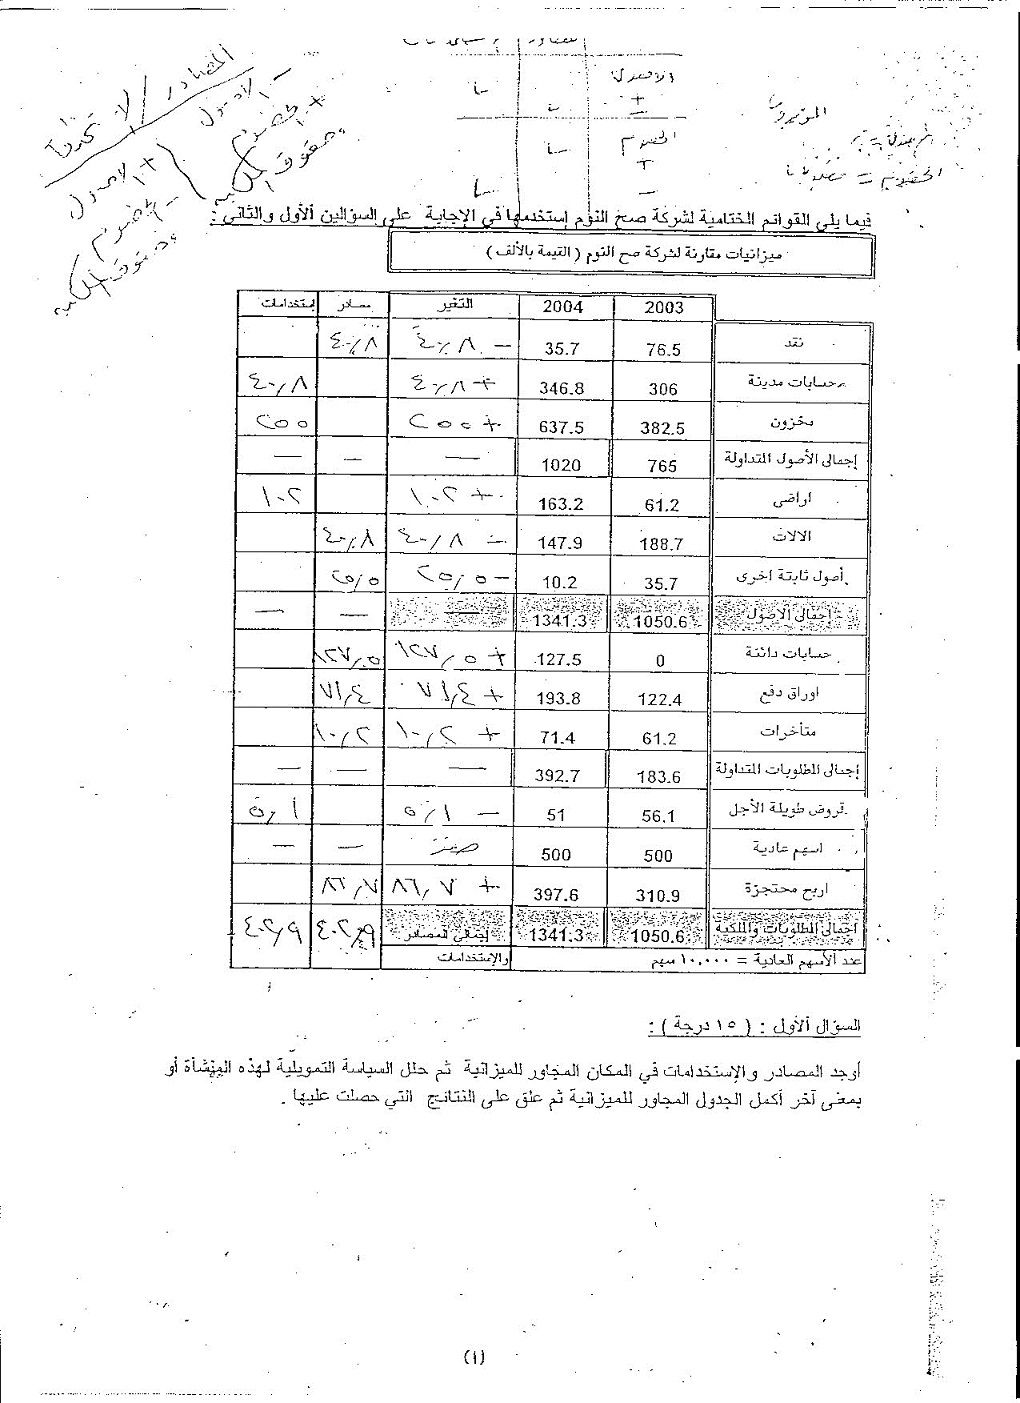 المصادر / الاستخدامات
- الأصول
+ الخصوم
+ الأصول
- الخصوم
الأصول
+
-
الخصوم
+
-
فيما يلى القوائم الختامية لشركة صح النوم إستخدمها في الإجابة على السؤالين الأول والثانى :
ميزانيات مقارنة لشركة صح النوم ( القيمة بالألف )
2003 2004 التغير مصادر إستخدامات
نقد 76.5 35.7 - ٤٠,٨ ٤٠,٨
حسابات مدينة 306 346.8 + ٤٠,٨ ٤٠,٨
مخزون 382.5 637.5 + ٢٥٥ ٢٥٥
إجمالى الأصول المتداولة 765 1020 — — —
اراضى 61.2 163.2 + ١٠٢ ١٠٢
الالات 188.7 147.9 - ٤٠,٨ ٤٠,٨
أصول ثابتة اخرى 35.7 10.2 - ٢٥,٥ ٢٥,٥
إجمالى الاصول 1050.6 1341.3 — — —
حسابات دائنة 0 127.5 + ١٢٧,٥ ١٢٧,٥
اوراق دفع 122.4 193.8 + ٧١,٤ ٧١,٤
متأخرات 61.2 71.4 + ١٠,٢ ١٠,٢
إجمالى المطلوبات المتداولة 183.6 392.7 — — —
قروض طويلة الأجل 56.1 51 - ٥,١ ٥,١
اسهم عادية 500 500 صفر — —
اربح محتجزة 310.9 397.6 + ٨٦,٧ ٨٦,٧
اجمالى المطلوبات والملكية 1050.6 1341.3 إجمالي المصادر ٤٠٢,٩ ٤٠٢,٩
عدد الأسهم العادية = ١٠,٠٠٠ سهم والإستخدامات
السؤال الأول : ( ١٥ درجة ) :
أوجد المصادر والإستخدامات في المكان المجاور للميزانية ثم حلل السياسة التمويلية لهذه المنشأة أو
بمعنى آخر أكمل الجدول المجاور للميزانية ثم علق على النتائج التي حصلت عليها .
(١)